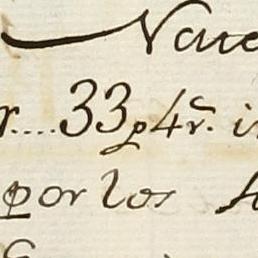 Nave
r....33p4r. i
por los